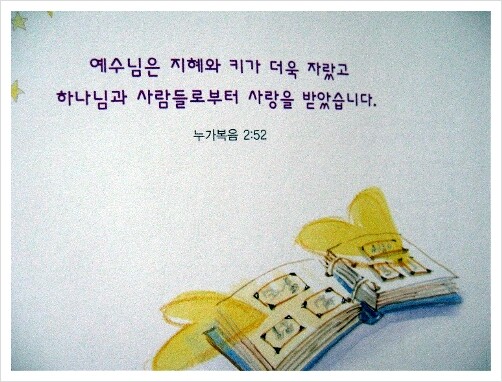 예수님은 지혜와 키가 더욱 자랐고
하나님과 사람들로부터 사랑을 받았습니다.
누가복음 2:52